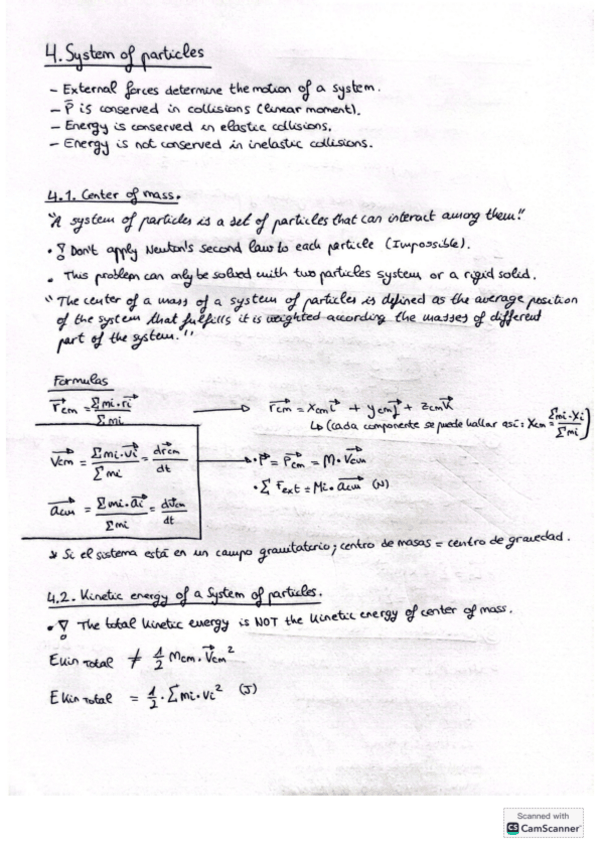 4. System of particles
- External forces determine the motion of a system.
- P⃗ is conserved in collisions (linear moment).
- Energy is conserved in elastic collisions.
- Energy is not conserved in inelastic collisions.
4.1. Center of mass.
"A system of particles is a set of particles that can interact among them."
• ! Don't apply Newton's second law to each particle (Impossible).
• This problem can only be solved with two particles system or a rigid solid.
"The center of a mass of a system of particles is defined as the average position
of the system that fulfills it is weighted according the masses of different
part of the system."
Formulas
r⃗cm = Σmi·r⃗i / Σmi → r⃗cm = xcm i⃗ + ycm j⃗ + zcm k⃗
↳ (cada componente se puede hallar así: Xcm = Σmi·Xi / Σmi)
V⃗cm = Σmi·v⃗i / Σmi = dr⃗cm / dt → • P⃗ = P⃗cm = M·V⃗cm
• Σ Fext = Mi·a⃗cm (N)
a⃗cm = Σmi·a⃗i / Σmi = dv⃗cm / dt
* Si el sistema está en un campo gravitatorio; centro de masas = centro de gravedad.
4.2. Kinetic energy of a System of particles.
• ! The total kinetic energy is NOT the kinetic energy of center of mass.
Ekin Total ≠ 1/2 Mcm·V⃗cm²
Ekin Total = 1/2·Σmi·vi² (J)
Scanned with
CS CamScanner